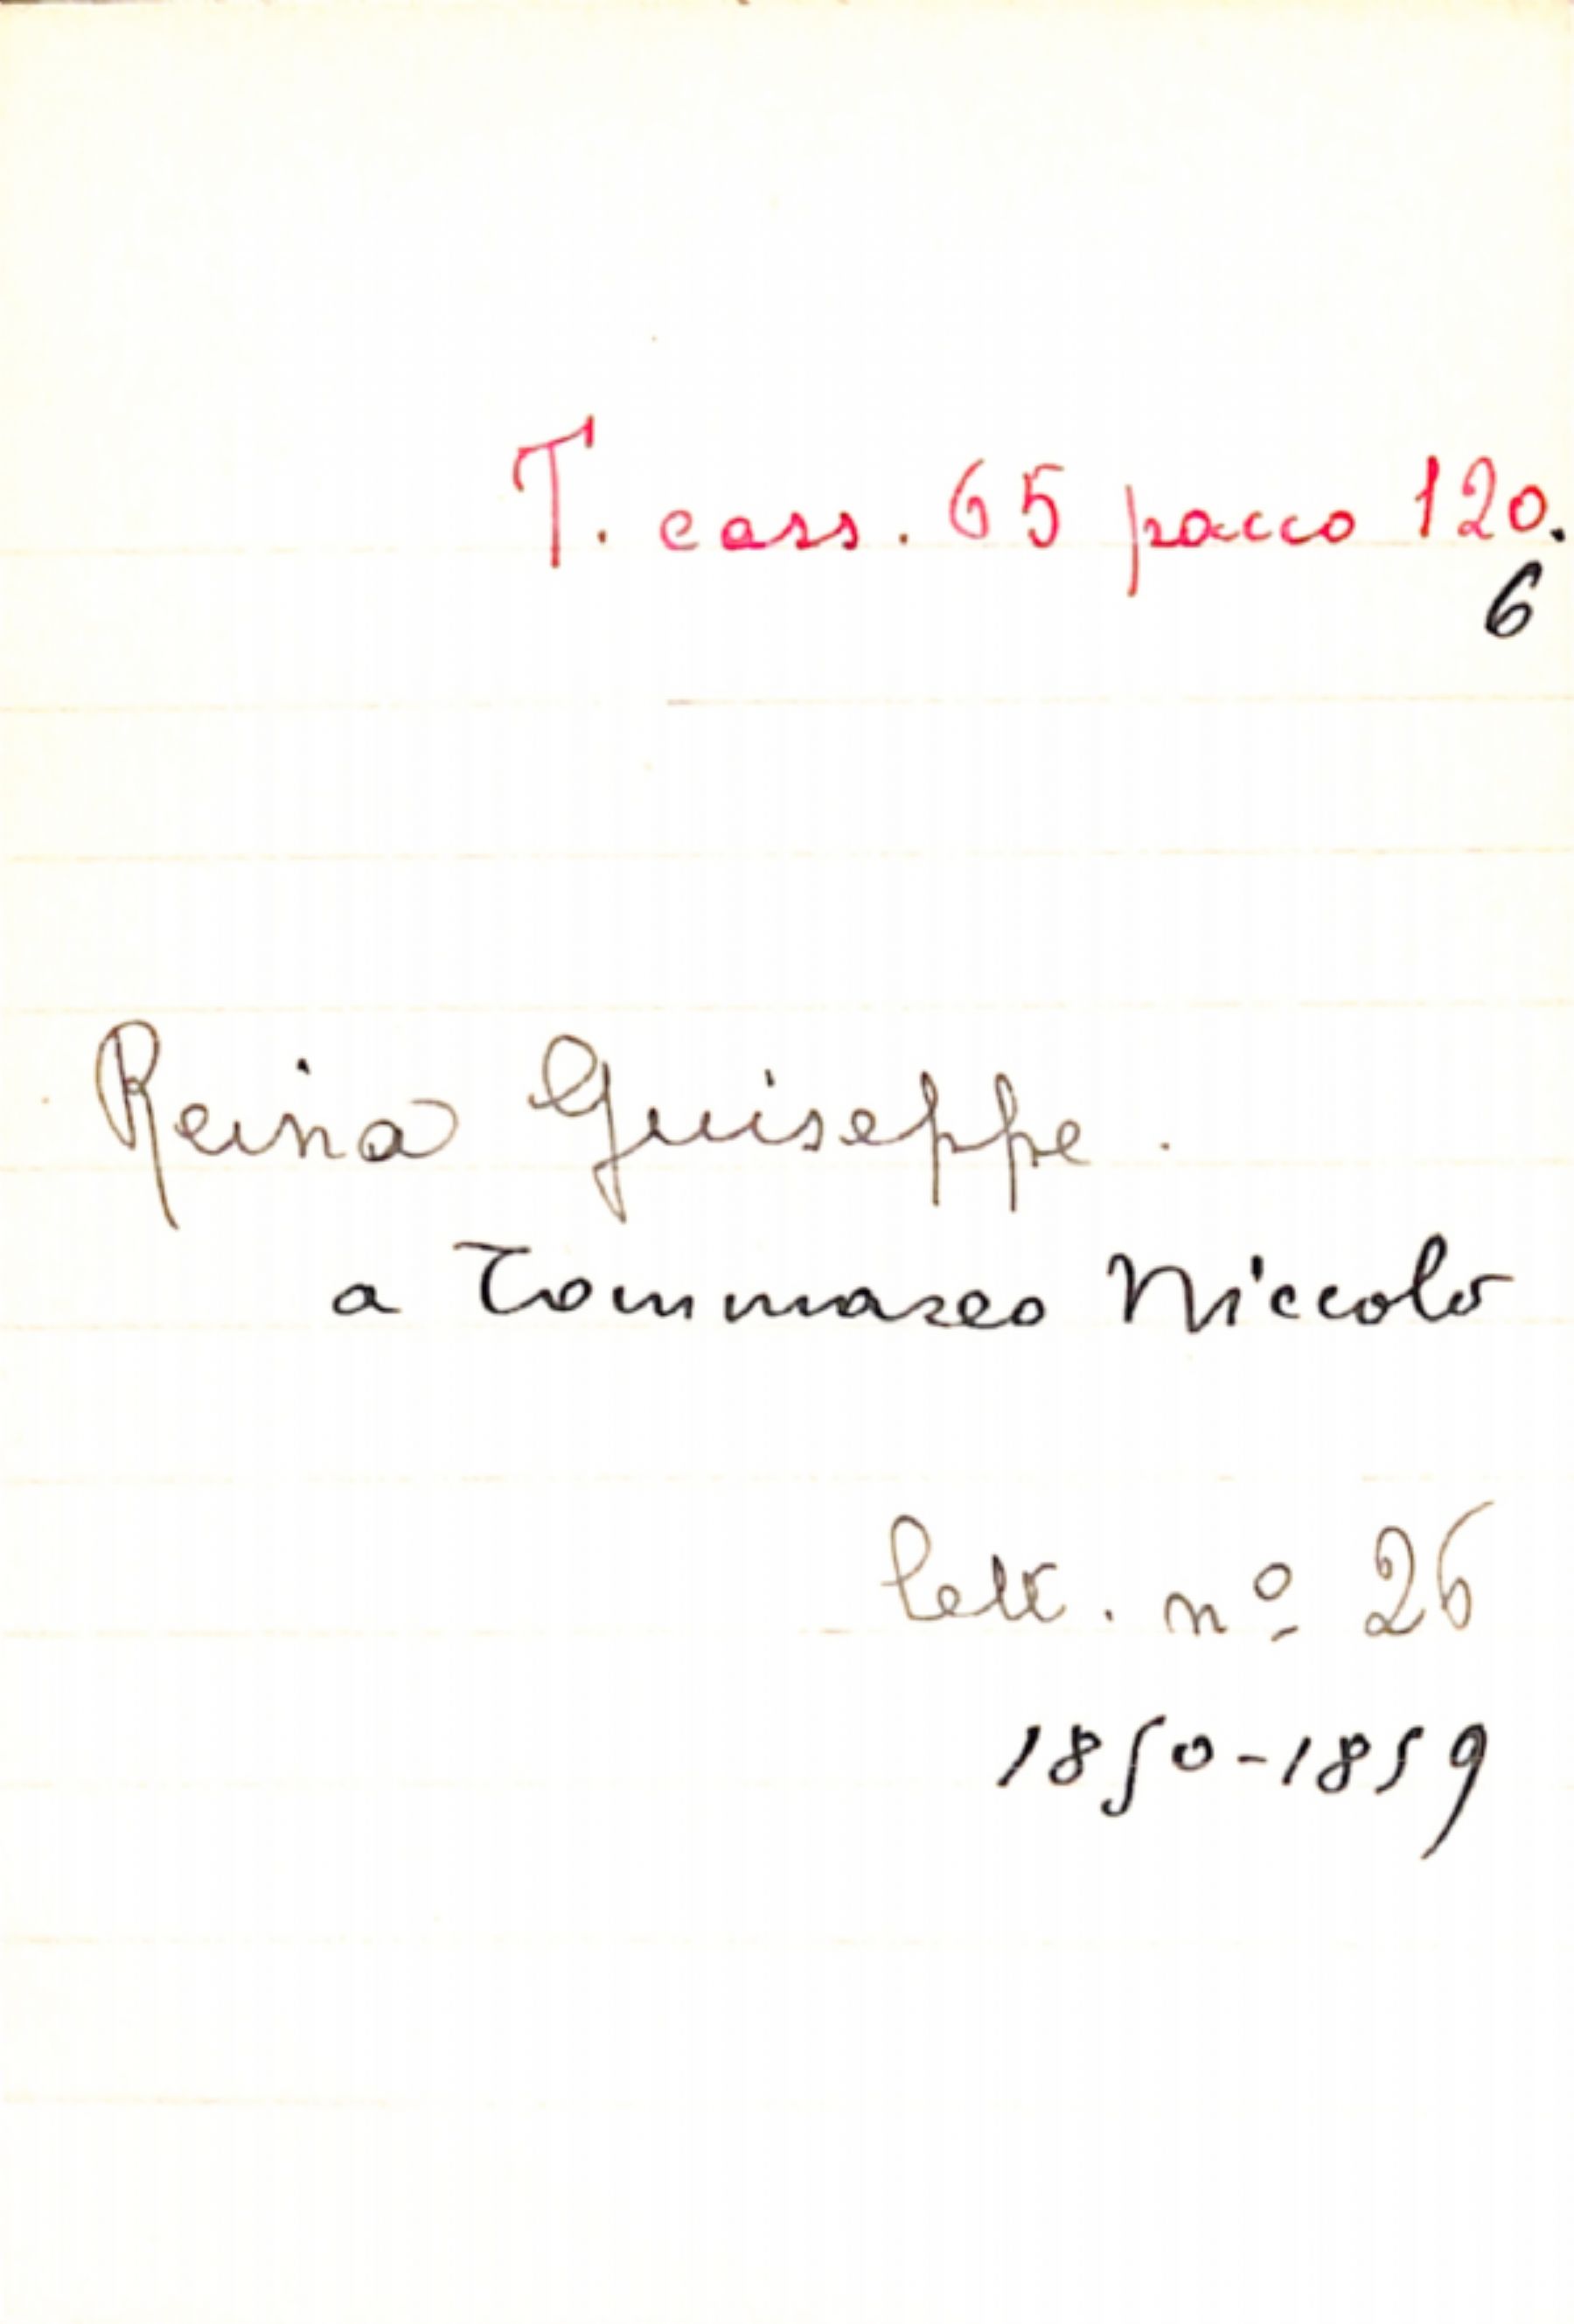 T. cass. 65 pacco 120.
6
Reina Giuseppe.
a Tommaseo Niccolò
lett. nº 26
1850-1859